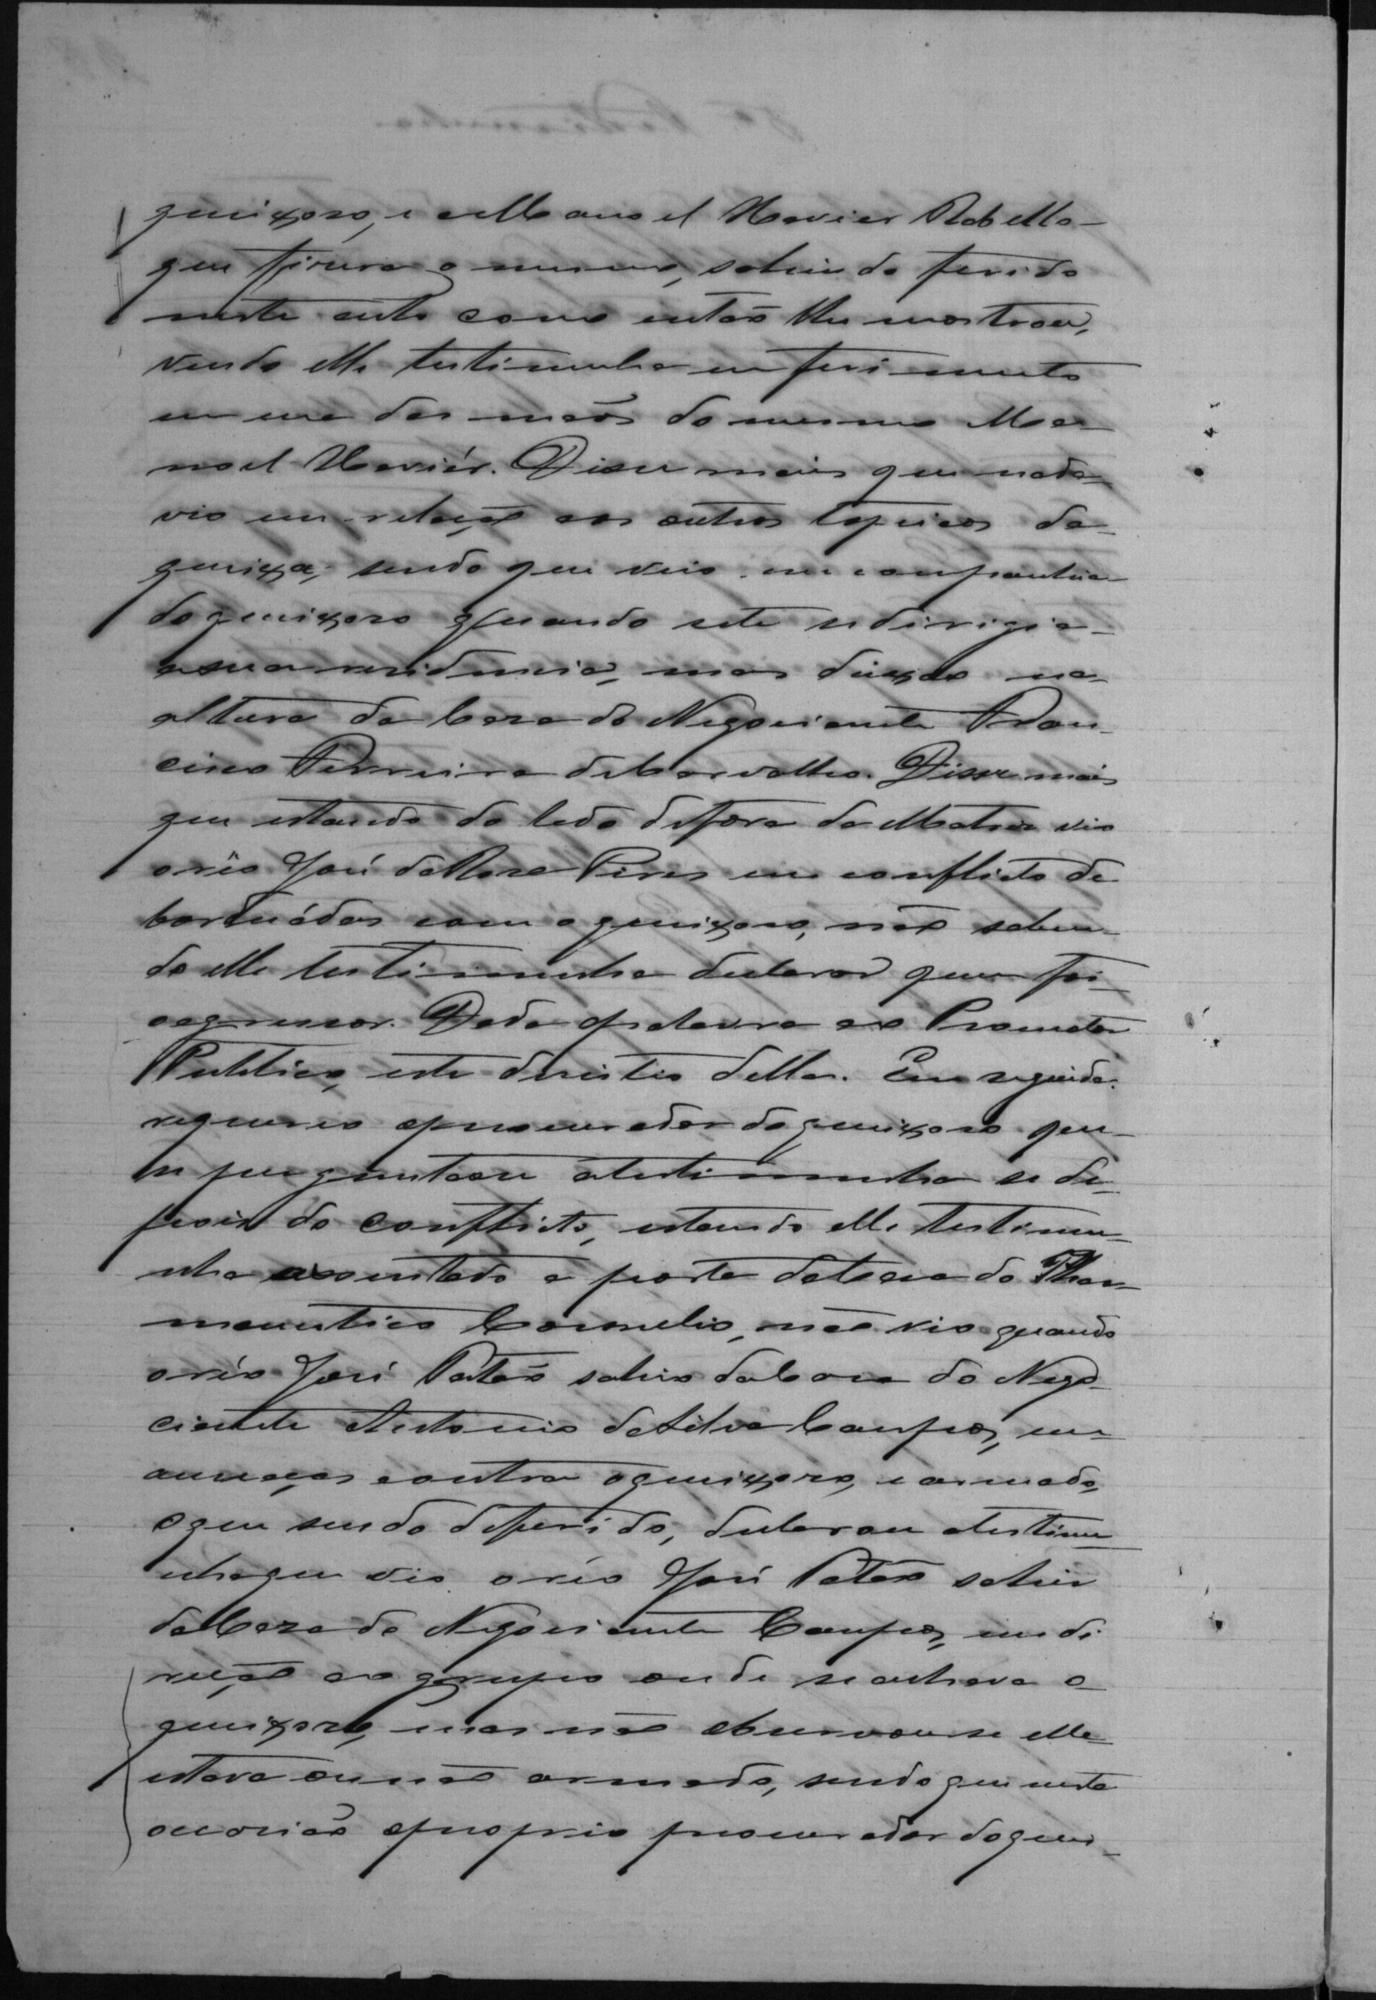 queixoso, e a Manoel Xavier Rabello
que tirára o mesmo, sahindo ferido
neste acto como então lhe mostrou,
vendo elle testimunha um ferimento
em uma das mãos do mesmo Ma-
noel Xaviér. Disse mais que nada
vio em relação aos outros topicos da
queixa, sendo que veio em companhia
do queixoso quando este se dirigia
a sua residencia, mas deixou na
altura da Casa do Negociante Fran-
cisco Ferreira de Carvalho. Disse mais
que estando do lado de fora da Matriz vio
o réo José da Roza Pires em conflicto de
bordoádas com o queixoso, não saben-
do elle testimunha declarar quem foi
o agressor. Dada a palavra ao Promotor
Publico, este desistio della. Em seguida
requereo o procurador do queixoso que
se perguntasse a testimunha se de-
pois do conflicto, estando elle testimu-
nha assentado a porta da casa do Phar-
maceutico Cornelio, não vio quando
o réo José Patão sahio da Casa do Nego-
ciante Antonio da Silva Campos, em
ameaças contra o queixoso, e armado,
o que sendo deferido, declarou a testimu
nha que vio o réo José Patão sahir
da Caza do Negociante Campos, em di
reção ao grupo onde se achava o
queixoso, mas não observou se elle
estava ou não armado, sendo que nesta
occasião o proprio procurador do quei-